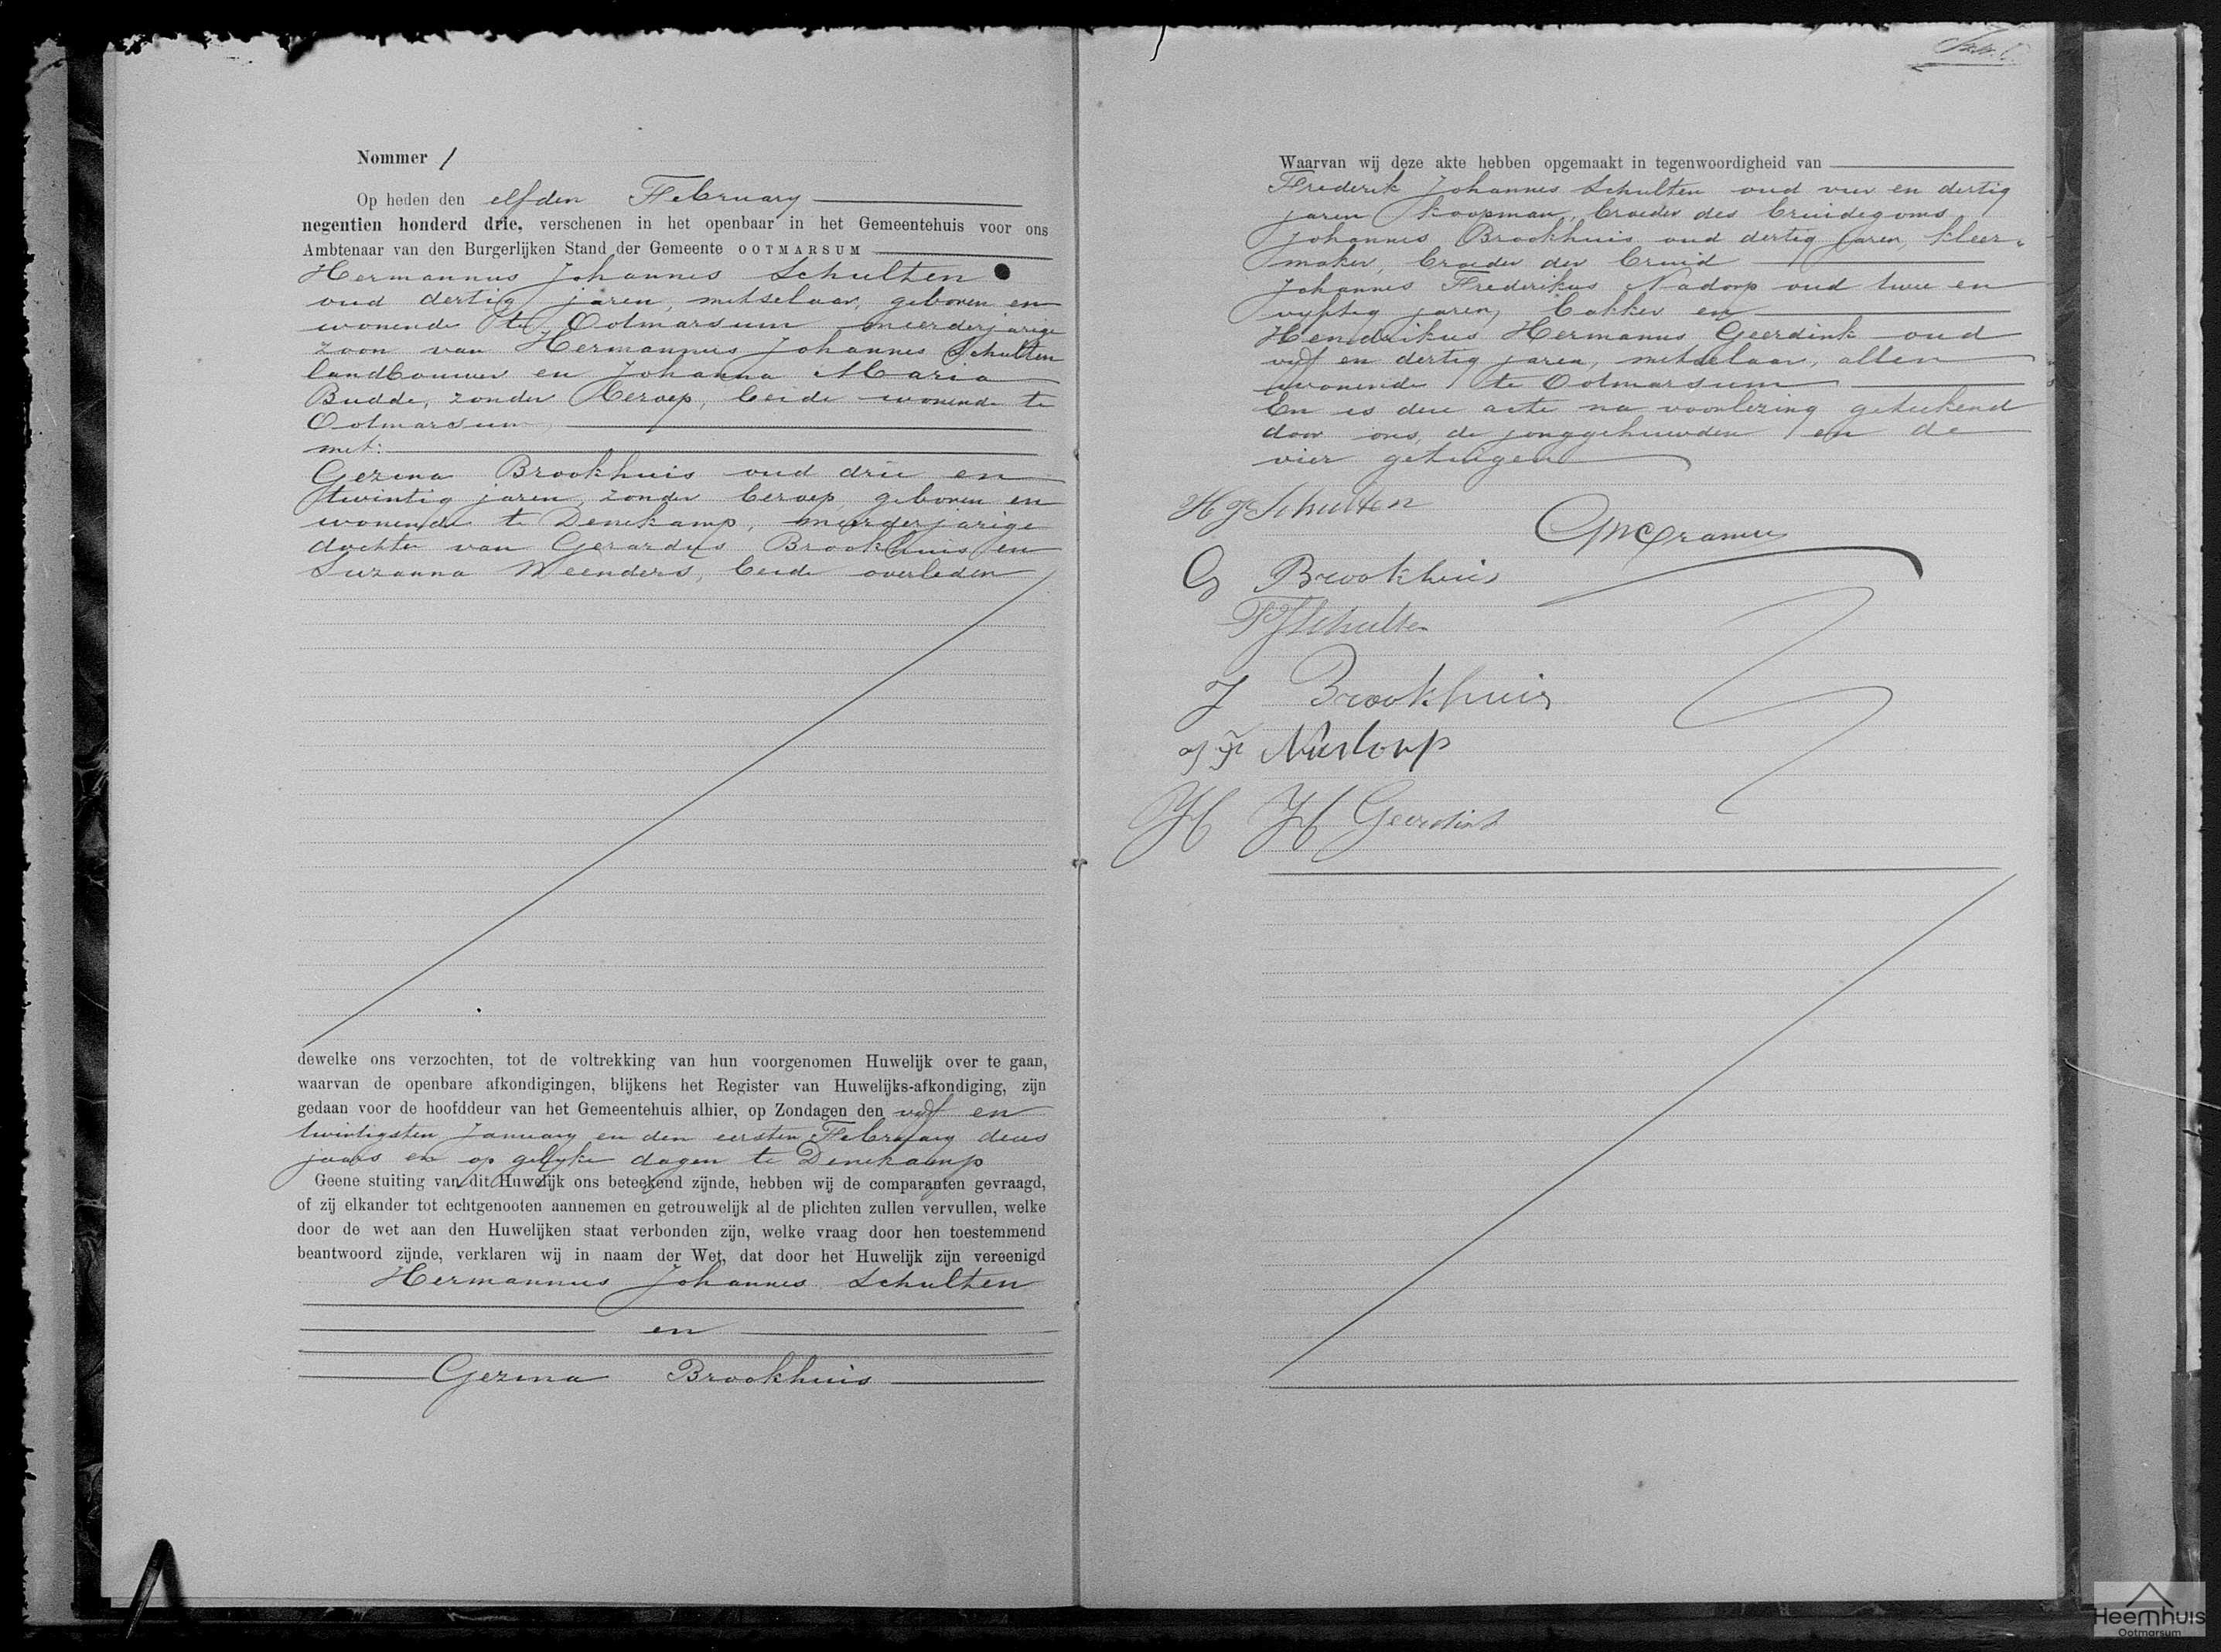 Nommer 1
Op heden den elfden February
negentien honderd drie, verschenen in het openbaar in het Gemeentehuis voor ons
Ambtenaar van den Burgerlijken Stand der Gemeente OOTMARSUM
Hermannus Johannes Schulten
oud dertig jaren, metselaar, geboren en
wonende te Ootmarsum meerderjarige
zoon van Hermannus Johannes Schulten
landbouwer en Johanna Maria
Budde, zonder beroep, beide wonende te
Ootmarsum,
met:
Gezina Brookhuis oud drie en
twintig jaren, zonder beroep, geboren en
wonende te Denekamp, meerderjarige
dochter van Gerardus Brookhuis en
Suzanna Meenders, beide overleden
dewelke ons verzochten, tot de voltrekking van hun voorgenomen Huwelijk over te gaan,
waarvan de openbare afkondigingen, blijkens het Register van Huwelijks-afkondiging, zijn
gedaan voor de hoofddeur van het Gemeentehuis alhier, op Zondagen den vijf en
twintigsten January en den eersten February dezes
jaars en op gelijke dagen te Denekamp
Geene stuiting van dit Huwelijk ons beteekend zijnde, hebben wij de comparanten gevraagd,
of zij elkander tot echtgenooten aannemen en getrouwelijk al de plichten zullen vervullen, welke
door de wet aan den Huwelijken staat verbonden zijn, welke vraag door hen toestemmend
beantwoord zijnde, verklaren wij in naam der Wet, dat door het Huwelijk zijn vereenigd
Hermannus Johannes Schulten
en
Gezina Brookhuis
Waarvan wij deze akte hebben opgemaakt in tegenwoordigheid van
Frederik Johannes Schulten oud vier en dertig
jaren koopman, broeder des bruidegoms
Johannes Brookhuis oud dertig jaren, kleer-
maker, broeder der bruid
Johannes Frederikus Nadorp oud twee en
vyftig jaren, bakker en
Hendrikus Hermannus Geerdink oud
vijf en dertig jaren, metselaar, allen
wonende te Ootmarsum
En is deze acte na voorlezing geteekend
door ons, de jonggehuwden en de
vier getuigen
H J Schulten
Cramer
G Brookhuis
F J Schulten
J Brookhuis
J F Nadorp
H H Geerdink
Heemhuis
Ootmarsum